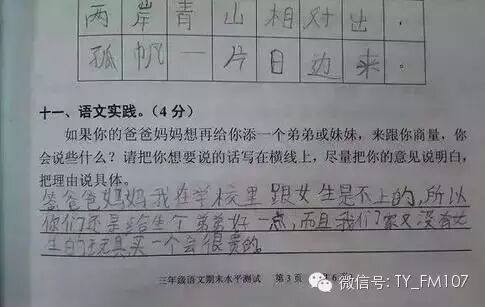 两岸青山相对出。
孤帆一片日边来。
十一、语文实践。(4分)
如果你的爸爸妈妈想再给你添一个弟弟或妹妹,来跟你商量,你
会说些什么?请把你想要说的话写在横线上,尽量把你的意见说明白,
把理由说具体。
爸爸妈妈我在学校里跟女生是不上的,所以
你们还是给生个弟弟好一点,而且我们家又没有女
生的玩具买一个会很贵的。
三年级语文期末水平测试 第3页 6
微信号: TY_FM107